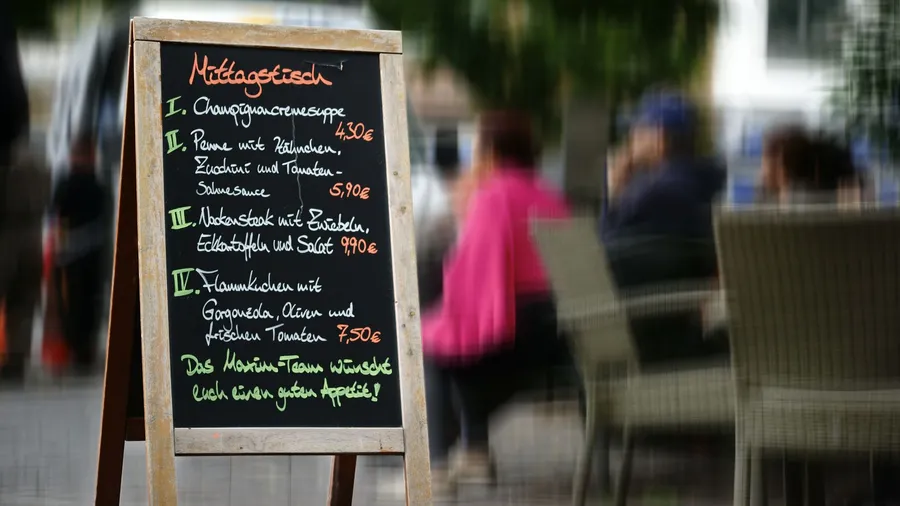 Mittagstisch
I. Champignoncremesuppe
4,30€
II. Penne mit Hähnchen,
Zucchini und Tomaten-
Sahnesauce 5,90€
III. Nackensteak mit Zwiebeln,
Eckkartoffeln und Salat 9,90€
IV. Flammkuchen mit
Gorgonzola, Oliven und
frischen Tomaten 7,50€
Das Maxim-Team wünscht
euch einen guten Appetit!